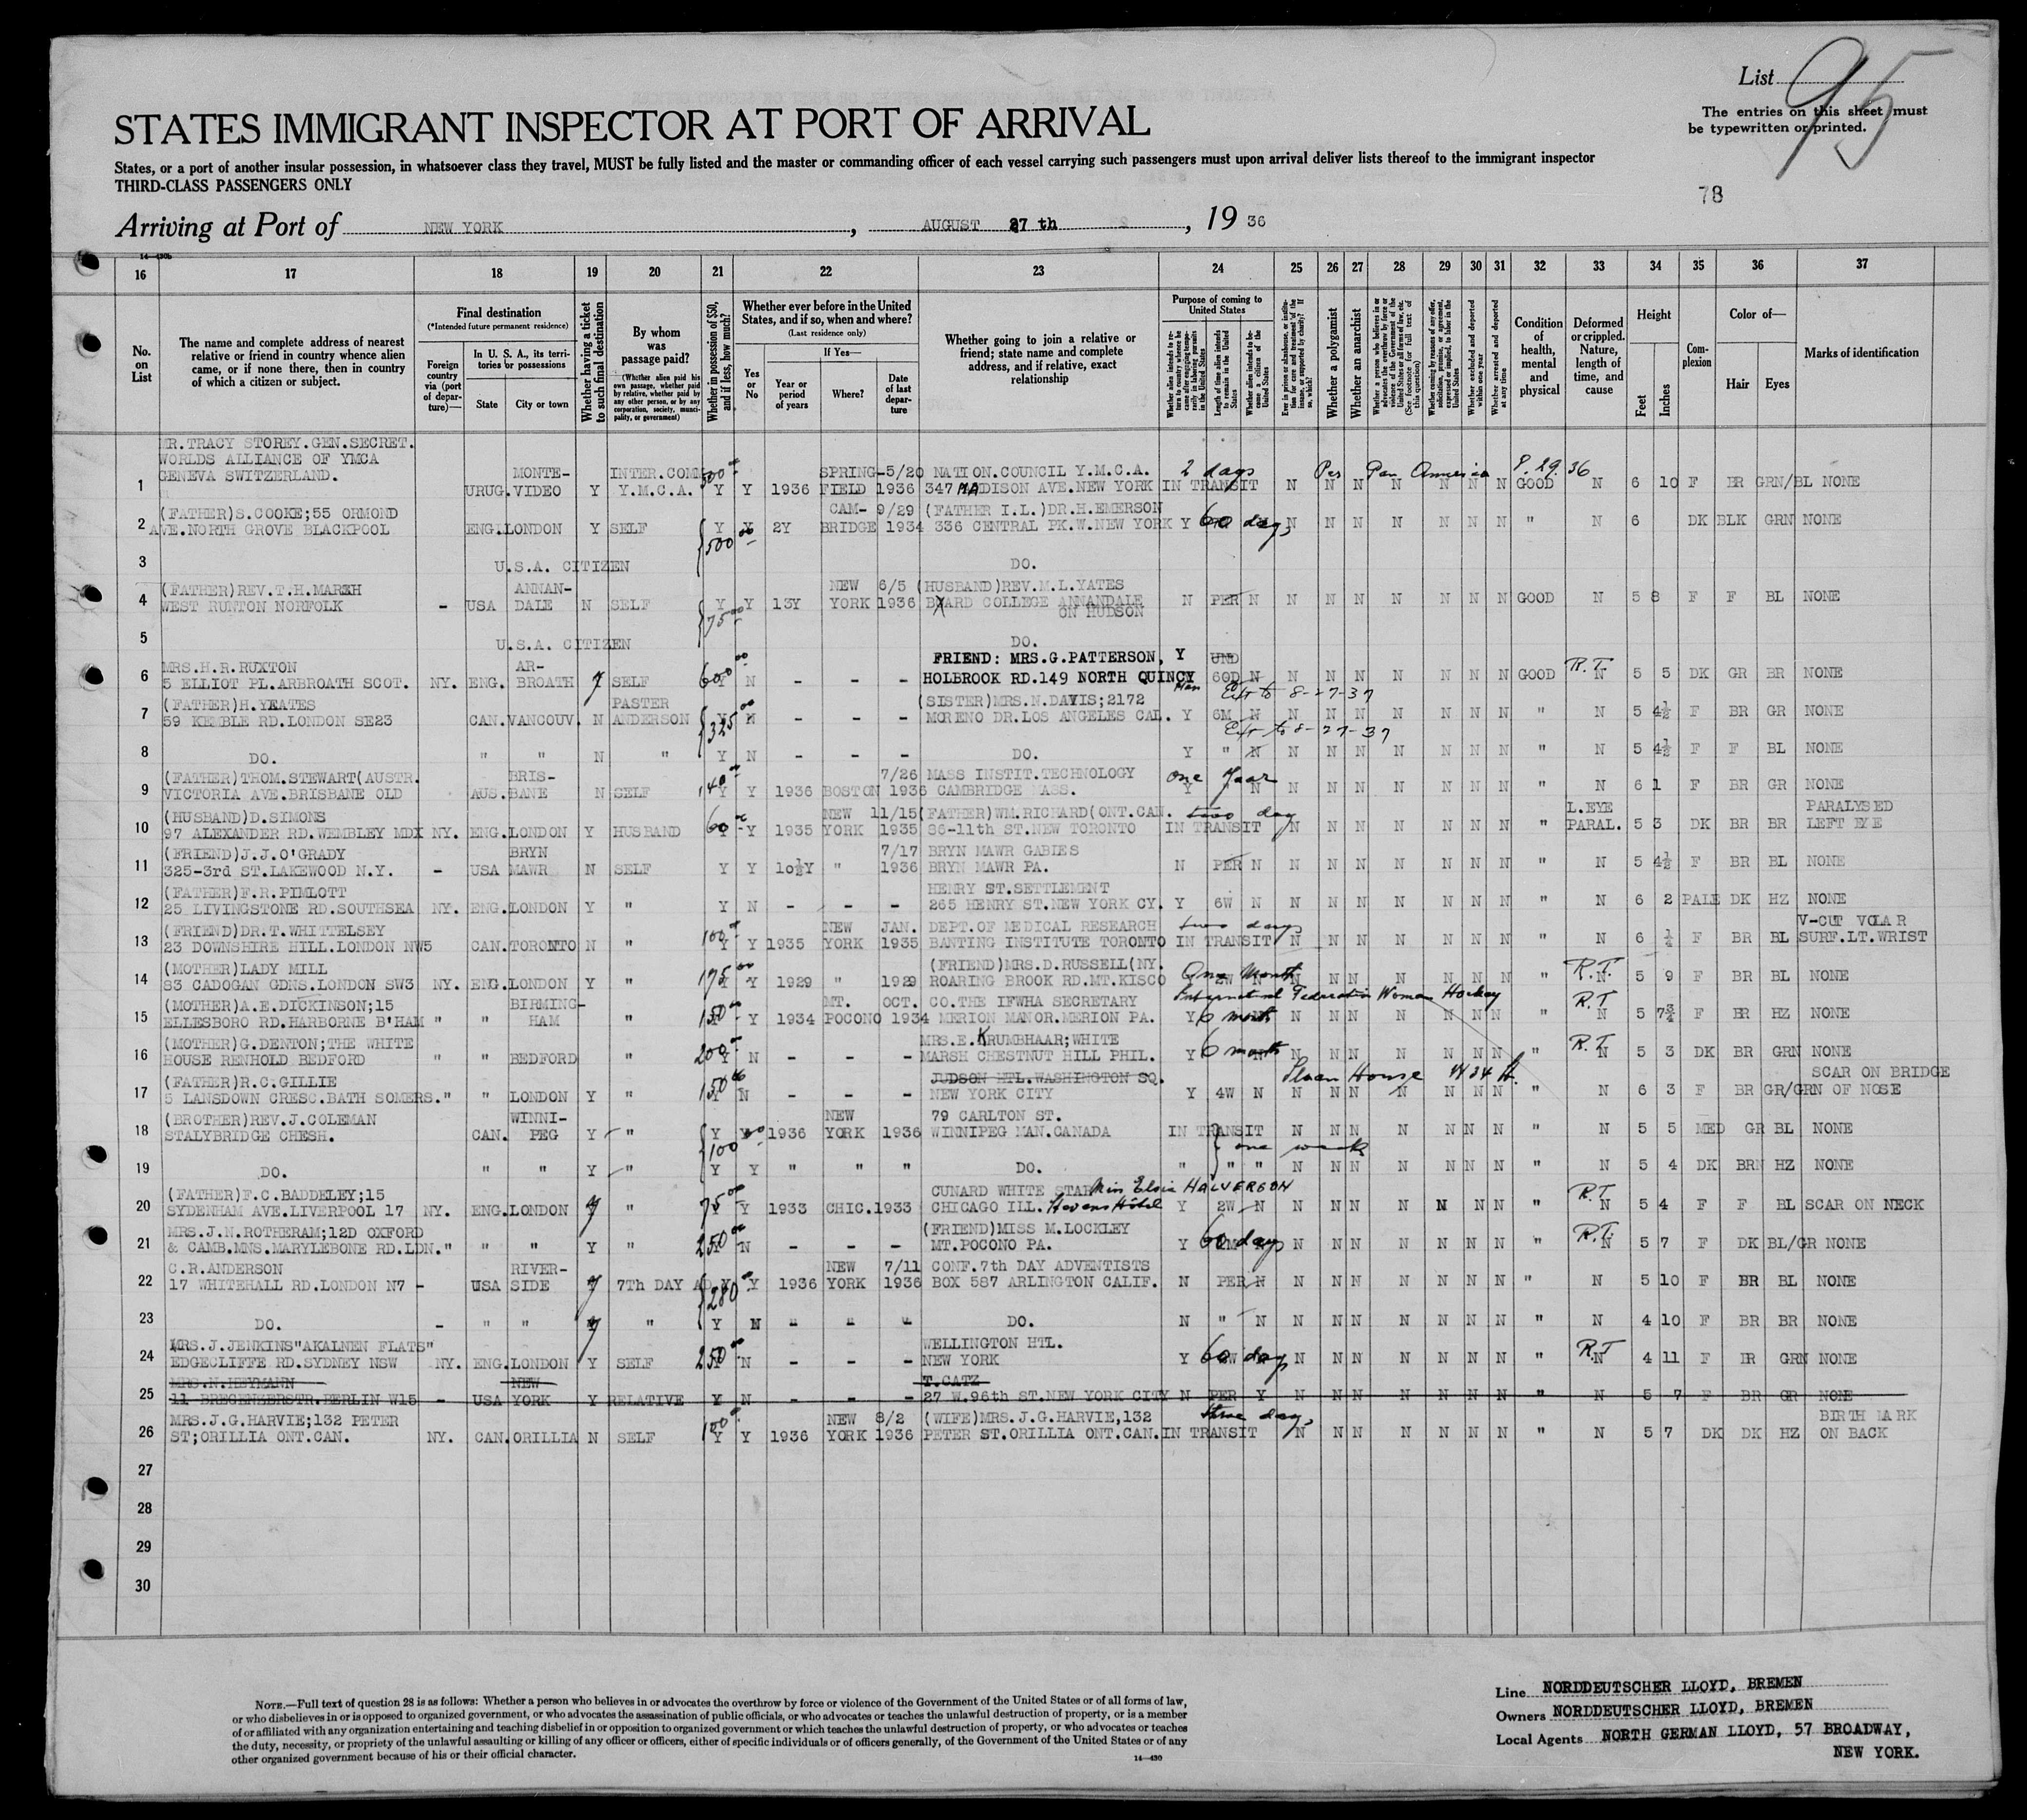 List 95
The entries on this sheet must
be typewritten or printed.
STATES IMMIGRANT INSPECTOR AT PORT OF ARRIVAL
States, or a port of another insular possession, in whatsoever class they travel, MUST be fully listed and the master or commanding officer of each vessel carrying such passengers must upon arrival deliver lists thereof to the immigrant inspector
THIRD-CLASS PASSENGERS ONLY
78
Arriving at Port of NEW YORK, AUGUST 27 th, 1936
14—430b
16 17 18 19 20 21 22 23 24 25 26 27 28 29 30 31 32 33 34 35 36 37
No. on List
The name and complete address of nearest relative or friend in country whence alien came, or if none there, then in country of which a citizen or subject.
Final destination
(*Intended future permanent residence)
Foreign country via (port of departure)—
In U. S. A., its territories or possessions
State City or town
Whether having a ticket to such final destination
By whom was passage paid?
(Whether alien paid his own passage, whether paid by relative, whether paid by any other person, or by any corporation, society, municipality, or government)
Whether in possession of $50, and if less, how much?
Whether ever before in the United States, and if so, when and where?
(Last residence only)
Yes or No
If Yes—
Year or period of years
Where?
Date of last departure
Whether going to join a relative or friend; state name and complete address, and if relative, exact relationship
Purpose of coming to United States
Whether alien intends to return to country whence he came after engaging temporarily in laboring pursuits in the United States
Length of time alien intends to remain in the United States
Whether alien intends to become a citizen of the United States
Ever in prison or almshouse, or institution for care and treatment of the insane, or supported by charity? If so, which?
Whether a polygamist
Whether an anarchist
Whether a person who believes in or advocates the overthrow by force or violence of the Government of the United States or all forms of law, etc. (See footnote for full text of this question)
Whether coming by reason of any offer, solicitation, promise, or agreement, expressed or implied, to labor in the United States
Whether excluded and deported within one year
Whether arrested and deported at any time
Condition of health, mental and physical
Deformed or crippled. Nature, length of time, and cause
Height
Feet Inches
Complexion
Color of—
Hair Eyes
Marks of identification
MR.TRACY STOREY.GEN.SECRET.
WORLDS ALLIANCE OF YMCA
GENEVA SWITZERLAND. MONTE- INTER.COMM 500 SPRING-5/20 NATION.COUNCIL Y.M.C.A. 2 days Per Pan America 8.29.36
1 URUG.VIDEO Y Y.M.C.A. Y Y 1936 FIELD 1936 347 MADISON AVE.NEW YORK IN TRANSIT N N N N N N N GOOD N 6 10 F BR GRN/BL NONE
(FATHER)S.COOKE;55 ORMOND CAM- 9/29 (FATHER I.L.)DR.H.EMERSON
2 AVE.NORTH GROVE BLACKPOOL ENG.LONDON Y SELF Y Y 2Y BRIDGE 1934 336 CENTRAL PK.W.NEW YORK Y 60 days N N N N N N N " N 6 DK BLK GRN NONE
500 00
3 U.S.A. CITIZEN DO.
(FATHER)REV.T.H.MARSH ANNAN- NEW 6/5 (HUSBAND)REV.M.L.YATES
4 WEST RUNTON NORFOLK - USA DALE N SELF Y Y 13Y YORK 1936 BARD COLLEGE ANNANDALE N PER N N N N N N N N GOOD N 5 8 F F BL NONE
75 00 ON HUDSON
5 U.S.A. CITIZEN DO.
MRS.H.R.RUXTON AR- FRIEND: MRS.G.PATTERSON, Y UND R.T.
6 5 ELLIOT PL.ARBROATH SCOT. NY. ENG. BROATH Y SELF 600 00 Y N - - - HOLBROOK RD.149 NORTH QUINCY 60D N N N N N N N N GOOD N 5 5 DK GR BR NONE
(FATHER)H.YEATES PASTER (SISTER)MRS.N.DAVIS;2172 Ext to 8-27-37
7 59 KEMBLE RD.LONDON SE23 CAN.VANCOUV. N ANDERSON 325 00 Y N - - - MORENO DR.LOS ANGELES CAL. Y 6M N N N N N N N N " N 5 4½ F BR GR NONE
Ext to 8-27-37
8 DO. " " N " Y N - - - DO. Y " N N N N N N N N " N 5 4½ F F BL NONE
(FATHER)THOM.STEWART(AUSTR. BRIS- 7/26 MASS INSTIT.TECHNOLOGY one year
9 VICTORIA AVE.BRISBANE OLD AUS.BANE N SELF 140 Y Y 1936 BOSTON 1936 CAMBRIDGE MASS. Y N N N N N N N N " N 6 1 F BR GR NONE
(HUSBAND)D.SIMONS NEW 11/15(FATHER)WM.RICHARD(ONT.CAN. two day L.EYE PARALYSED
10 97 ALEXANDER RD.WEMBLEY MDX NY. ENG.LONDON Y HUSBAND 60 Y Y 1935 YORK 1935 86-11th ST.NEW TORONTO IN TRANSIT N N N N N N N " PARAL. 5 3 DK BR BR LEFT EYE
(FRIEND)J.J.O'GRADY BRYN 7/17 BRYN MAWR GABIES
11 325-3rd ST.LAKEWOOD N.Y. - USA MAWR N SELF Y Y 10½Y " 1936 BRYN MAWR PA. N PER N N N N N N N N " N 5 4½ F BR BL NONE
(FATHER)F.R.PIMLOTT HENRY ST.SETTLEMENT
12 25 LIVINGSTONE RD.SOUTHSEA NY. ENG.LONDON Y " Y N - - - 265 HENRY ST.NEW YORK CY. Y 6W N N N N N N N N " N 6 2 PALE DK HZ NONE
(FRIEND)DR.T.WHITTELSEY NEW JAN. DEPT.OF MEDICAL RESEARCH two days V-CUT VOLAR
13 23 DOWNSHIRE HILL.LONDON NW5 CAN.TORONTO N " 100 Y Y 1935 YORK 1935 BANTING INSTITUTE TORONTO IN TRANSIT N N N N N N N " N 6 ¼ F BR BL SURF.LT.WRIST
(MOTHER)LADY MILL (FRIEND)MRS.D.RUSSELL(NY. One Month R.T.
14 83 CADOGAN GDNS.LONDON SW3 NY. ENG.LONDON Y " 175 00 Y Y 1929 " 1929 ROARING BROOK RD.MT.KISCO 2W N N N N N N N N " N 5 9 F BR BL NONE
(MOTHER)A.E.DICKINSON;15 BIRMING- MT. OCT. CO.THE IFWHA SECRETARY International Federation Woman Hockey R.T
15 ELLESBORO RD.HARBORNE B'HAM " " HAM " 150 00 Y Y 1934 POCONO 1934 MERION MANOR.MERION PA. Y 6 month N N N N N N N " N 5 7¾ F BR HZ NONE
(MOTHER)G.DENTON;THE WHITE MRS.E.KRUMBHAAR;WHITE R.T.
16 HOUSE RENHOLD BEDFORD " " BEDFORD " 200 Y N - - - MARSH CHESTNUT HILL PHIL. Y 6 month N N N N N N N " N 5 3 DK BR GRN NONE
(FATHER)R.C.GILLIE JUDSON HTL.WASHINGTON SQ. Sloan House W 34 St. SCAR ON BRIDGE
17 5 LANSDOWN CRESC.BATH SOMERS." " LONDON Y " 150 00 Y N - - - NEW YORK CITY Y 4W N N N N N N N N " N 6 3 F BR GR/GRN OF NOSE
(BROTHER)REV.J.COLEMAN WINNI- NEW 79 CARLTON ST.
18 STALYBRIDGE CHESH. CAN. PEG Y " Y Y 1936 YORK 1936 WINNIPEG MAN.CANADA IN TRANSIT N N N N N N N " N 5 5 MED GR BL NONE
100 00 one week
19 DO. " " Y " Y Y " " " DO. " " " N N N N N N N " N 5 4 DK BRN HZ NONE
(FATHER)F.C.BADDELEY;15 CUNARD WHITE STAR Miss Elsie HALVERSON R.T
20 SYDENHAM AVE.LIVERPOOL 17 NY. ENG.LONDON Y " 75 00 Y Y 1933 CHIC.1933 CHICAGO ILL. Stevens Hotel Y 2W N N N N N N N N " N 5 4 F F BL SCAR ON NECK
MRS.J.N.ROTHERAM;12D OXFORD (FRIEND)MISS M.LOCKLEY R.T.
21 & CAMB.MNS.MARYLEBONE RD.LDN." " " Y " 250 00 Y N - - - MT.POCONO PA. Y 60 days N N N N N N N " N 5 7 F DK BL/GR NONE
C.R.ANDERSON RIVER- NEW 7/11 CONF.7th DAY ADVENTISTS
22 17 WHITEHALL RD.LONDON N7 - USA SIDE Y 7Th DAY AD Y Y 1936 YORK 1936 BOX 587 ARLINGTON CALIF. N PER N N N N N N N N " N 5 10 F BR BL NONE
280
23 DO. - " " Y " Y N - - - DO. N " N N N N N N N N " N 4 10 F BR BR NONE
MRS.J.JENKINS"AKALNEN FLATS" WELLINGTON HTL. R.T
24 EDGECLIFFE RD.SYDNEY NSW NY. ENG.LONDON Y SELF 250 00 Y N - - - NEW YORK Y 60 days N N N N N N N " N 4 11 F BR GRN NONE
MRS.N.HEYMANN NEW T.CATZ
25 11 BREGENZERSTR.BERLIN W15 - USA YORK Y RELATIVE Y N - - - 27 W.96th ST.NEW YORK CITY N PER Y N N N N N N N " N 5 7 F BR GR NONE
MRS.J.G.HARVIE;132 PETER NEW 8/2 (WIFE)MRS.J.G.HARVIE,132 three days BIRTH MARK
26 ST;ORILLIA ONT.CAN. NY. CAN.ORILLIA N SELF 100 Y Y 1936 YORK 1936 PETER ST.ORILLIA ONT.CAN.IN TRANSIT N N N N N N N " N 5 7 DK DK HZ ON BACK
27
28
29
30
NOTE.—Full text of question 28 is as follows: Whether a person who believes in or advocates the overthrow by force or violence of the Government of the United States or of all forms of law,
or who disbelieves in or is opposed to organized government, or who advocates the assassination of public officials, or who advocates or teaches the unlawful destruction of property, or is a member
of or affiliated with any organization entertaining and teaching disbelief in or opposition to organized government or which teaches the unlawful destruction of property, or who advocates or teaches
the duty, necessity, or propriety of the unlawful assaulting or killing of any officer or officers, either of specific individuals or of officers generally, of the Government of the United States or of any
other organized government because of his or their official character.
14—430
Line NORDDEUTSCHER LLOYD, BREMEN
Owners NORDDEUTSCHER LLOYD, BREMEN
Local Agents NORTH GERMAN LLOYD, 57 BROADWAY,
NEW YORK.